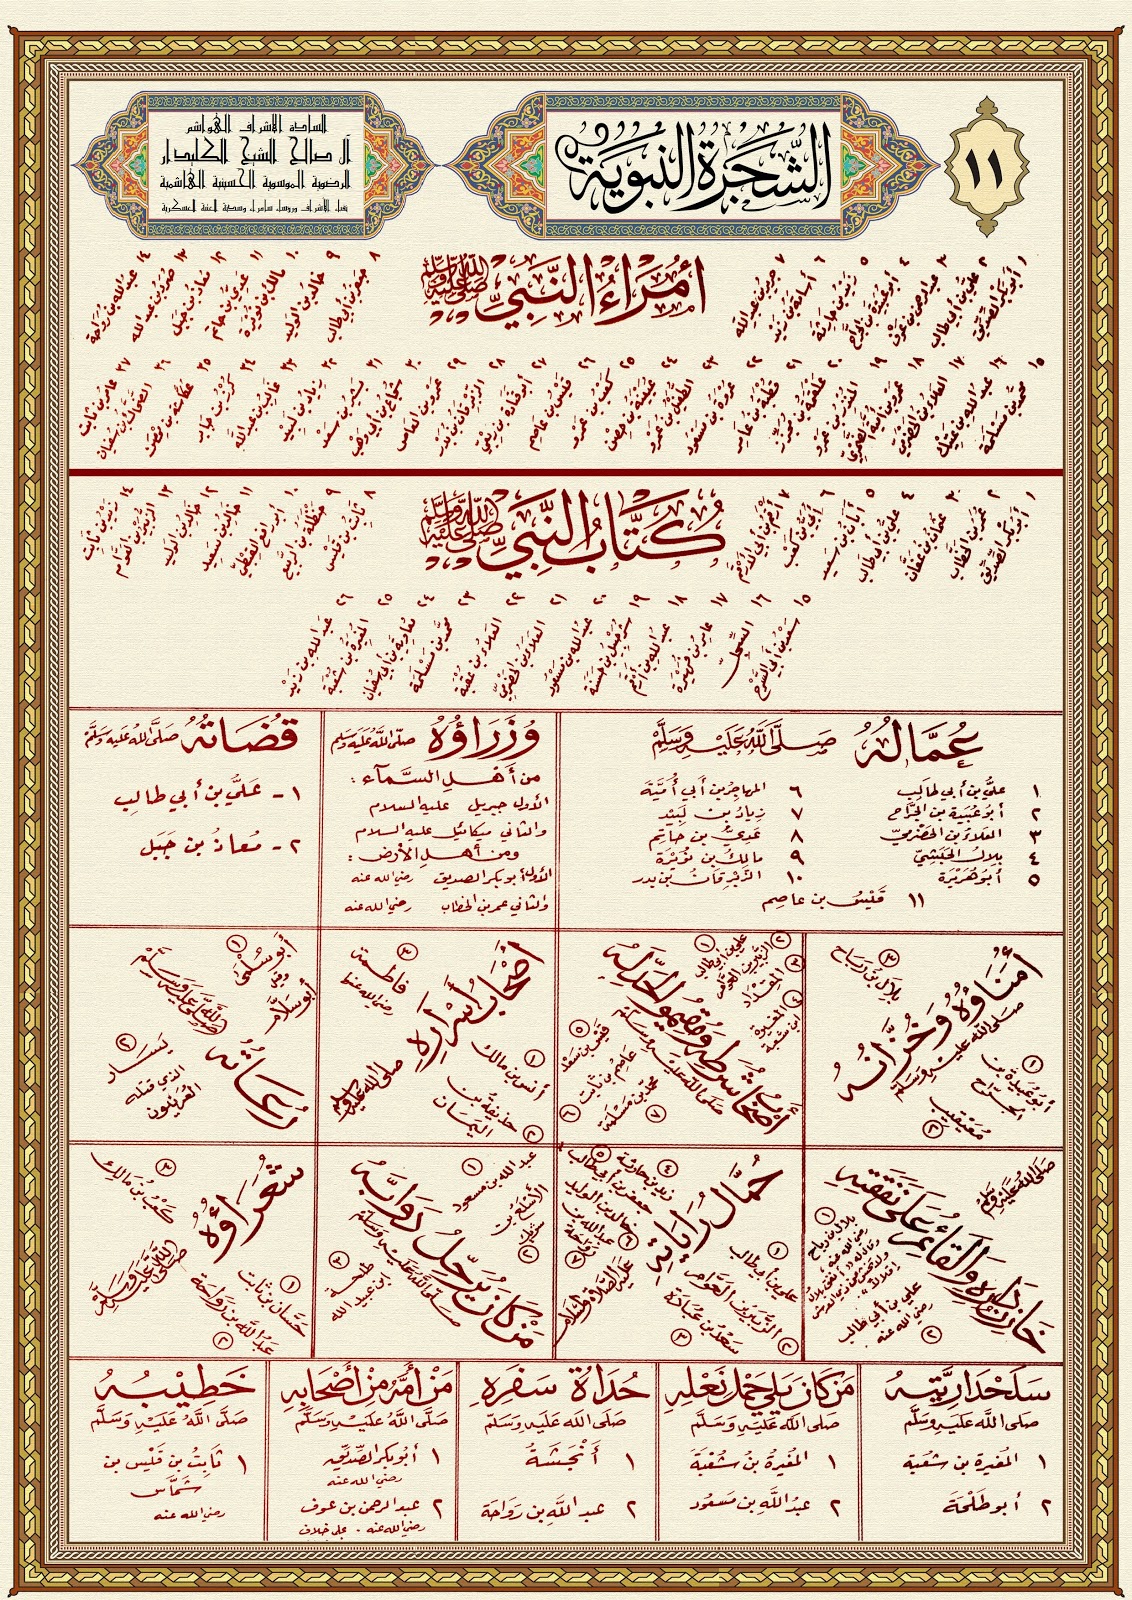 ١١
الشجرة النبوية
السادة الاشراف الهواشم
آل صالح الشيخ الكليدار
الرضوية الموسوية الحسينية الهاشمية
نقباء الاشراف ورؤساء سامراء وسدنة
أمراء النبي صلى الله عليه وسلم
١ أبو بكر الصديق
٢ علي بن أبي طالب
٣ عبد الرحمن بن عوف
٤ أبو عبيدة بن الجراح
٥ زيد بن حارثة
٦ أسامة بن زيد
٧ جرير بن عبد الله
٨ جعفر بن أبي طالب
٩ خالد بن الوليد
١٠ مالك بن نويرة
١١ عدي بن حاتم
١٢ معاذ بن جبل
١٣ صرد بن عبد الله
١٤ عبد الله بن رواحة
١٥ محمد بن مسلمة
١٦ عبد الله بن عتيك
١٧ العلاء بن الحضرمي
١٨ عمرو بن أمية الضمري
١٩ المنذر بن عمرو
٢٠ علقمة بن مجزز
٢١ قطبة بن عامر
٢٢ عروة بن مسعود
٢٣ الطفيل بن عمرو
٢٤ عيينة بن حصن
٢٥ كعب بن عمرو
٢٦ قيس بن عاصم
٢٧ أبو قتادة بن ربعي
٢٨ الزبرقان بن بدر
٢٩ عمرو بن العاص
٣٠ شجاع بن أبي وهب
٣١ بشير بن سعد
٣٢ زياد بن لبيد
٣٣ غالب بن عبد الله
٣٤ كرز بن جابر
٣٥ عكاشة بن محصن
٣٦ الضحاك بن سفيان
٣٧ عامر بن ثابت
كتاب النبي صلى الله عليه وسلم
١ أبو بكر الصديق
٢ عمر بن الخطاب
٣ عثمان بن عفان
٤ علي بن أبي طالب
٥ أبان بن سعيد
٦ أبي بن كعب
٧ أرقم بن أبي الأرقم
٨ ثابت بن قيس
٩ حنظلة بن الربيع
١٠ أبو رافع القبطي
١١ خالد بن سعيد
١٢ خالد بن الوليد
١٣ الزبير بن العوام
١٤ زيد بن ثابت
١٥ سعد بن أبي السرح
١٦ السجل
١٧ عامر بن فهيرة
١٨ عبد الله بن أرقم
١٩ شرحبيل بن حسنة
٢٠ عبد الله بن مسعود
٢١ العلاء بن الحضرمي
٢٢ العلاء بن عقبة
٢٣ محمد بن مسلمة
٢٤ معاوية بن أبي سفيان
٢٥ المغيرة بن شعبة
٢٦ عبد الله بن زيد
عماله صلى الله عليه وسلم
١ علي بن أبي طالب
٢ أبو عبيدة بن الجراح
٣ العلاء بن الحضرمي
٤ بلال الحبشي
٥ أبو هريرة
٦ المهاجر بن أبي أمية
٧ زياد بن لبيد
٨ عدي بن حاتم
٩ مالك بن نويرة
١٠ الزبرقان بن بدر
١١ قيس بن عاصم
وزراؤه صلى الله عليه وسلم
من أهل السماء :
الأول جبريل عليه السلام
والثاني ميكائيل عليه السلام
ومن أهل الأرض :
الأول أبو بكر الصديق رضي الله عنه
والثاني عمر بن الخطاب رضي الله عنه
قضاته صلى الله عليه وسلم
١- علي بن أبي طالب
٢- معاذ بن جبل
أمناؤه وخزانه
صلى الله عليه وسلم
١ أبو عبيدة بن الجراح
٢ معيقيب
٣ بلال بن رباح
أصحاب شرطه ومقيمو الحد له
صلى الله عليه وسلم
١ علي بن أبي طالب
٢ الزبير بن العوام
٣ المقداد
٤ المغيرة ابن شعبة
٥ قيس بن سعد
٦ عاصم بن ثابت
٧ محمد بن مسلمة
أصحاب أسراره
صلى الله عليه وسلم
١ أنس بن مالك
٢ حذيفة بن اليمان
٣ فاطمة
رضي الله عنها
رعاته
صلى الله عليه وسلم
١ أبو سلمى
وقيل
أبو سلام
٢ يسار
الذي قتله
العرنيون
خازن داره والقائم على نفقته
صلى الله عليه وسلم
١ بلال بن رباح
رضي الله عنه
٢ علي بن أبي طالب
رضي الله عنه
حمال راياته
عليه الصلاة والسلام
١ علي بن أبي طالب
٢ الزبير بن العوام
٣ سعد بن عبادة
٤ زيد بن حارثة
٥ جعفر بن أبي طالب
٦ خالد بن الوليد
٧ عبد الله بن رواحة
من كان يرحل دوابه
صلى الله عليه وسلم
١ عبد الله بن مسعود
٢ الأسلع بن شريك
٣ طلحة بن عبيد الله
شعراؤه
صلى الله عليه وسلم
١ حسان بن ثابت
٢ عبد الله بن رواحة
٣ كعب بن مالك
سلحداريته
صلى الله عليه وسلم
١ المغيرة بن شعبة
٢ أبو طلحة
من كان يلي حمل نعله
صلى الله عليه وسلم
١ المغيرة بن شعبة
٢ عبد الله بن مسعود
حداة سفره
صلى الله عليه وسلم
١ أنجشة
٢ عبد الله بن رواحة
من أمه من أصحابه
صلى الله عليه وسلم
١ أبو بكر الصديق
رضي الله عنه
٢ عبد الرحمن بن عوف
رضي الله عنه - على خلاف
خطيبه
صلى الله عليه وسلم
١ ثابت بن قيس بن
شماس
رضي الله عنه